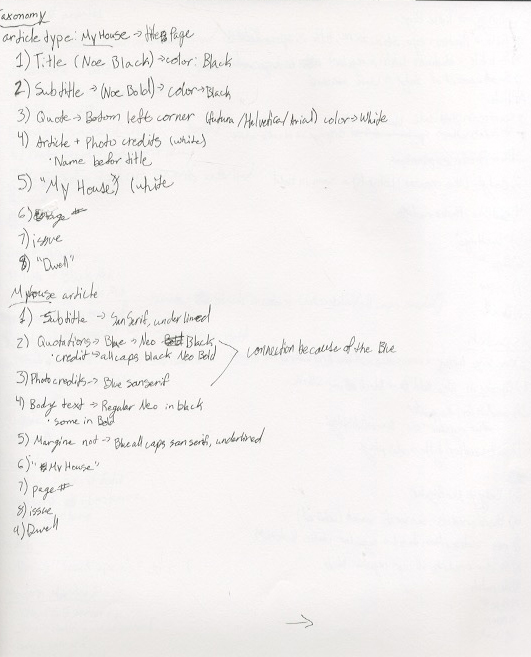 Taxonomy
article type: My House → title Page
1) Title (Noe Black) → color: Black
2) Subtitle → (Noe Bold) → color → Black
3) Quote → Bottom left corner (futura/Helvetica/Arial) color → White
4) Article + Photo credits (white)
· Name befor title
5) "My House") (white
6) page #
7) issue
8) "Dwell"
My house article
1) Subtitle → San Serif, underlined
2) Quotations → Blue → Neo Black
· credit → all caps black Neo Bold
connection because of the Blue
3) Photo credits → Blue sanserif
4) Body text → Regular Neo in black
· some in Bold
5) Margine not → Blue all caps san serif, underlined
6) "My House"
7) page #
8) issue
9) Dwell
→